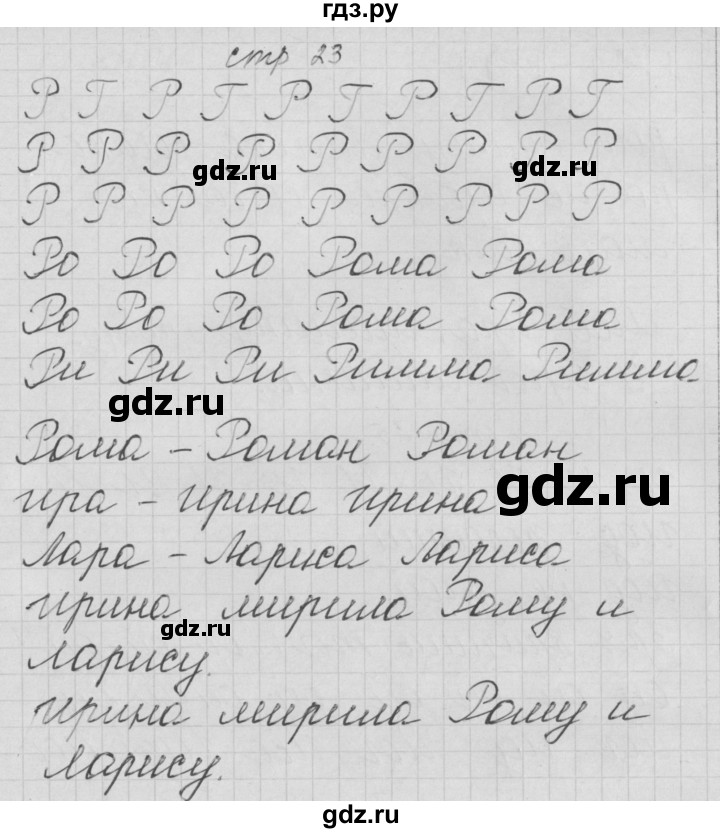 гдз.ру
стр 23
Р Г Р Г Р Г Р Г Р Г
Р Р Р Р Р Р Р Р Р
gdz.ru gdz.ru
Р Р Р Р Р Р Р Р Р
Ро Ро Ро Рома Рома
Ро Ро Ро Рома Рома
Ри Ри Ри Римма Римма
gdz.ru
Рома – Роман Роман
Ира – Ирина Ирина
gdz.ru
Лара – Лариса Лариса
Ирина мирила Рому и
gdz.ru
Ларису.
Ирина мирила Рому и
Ларису.
gdz.ru